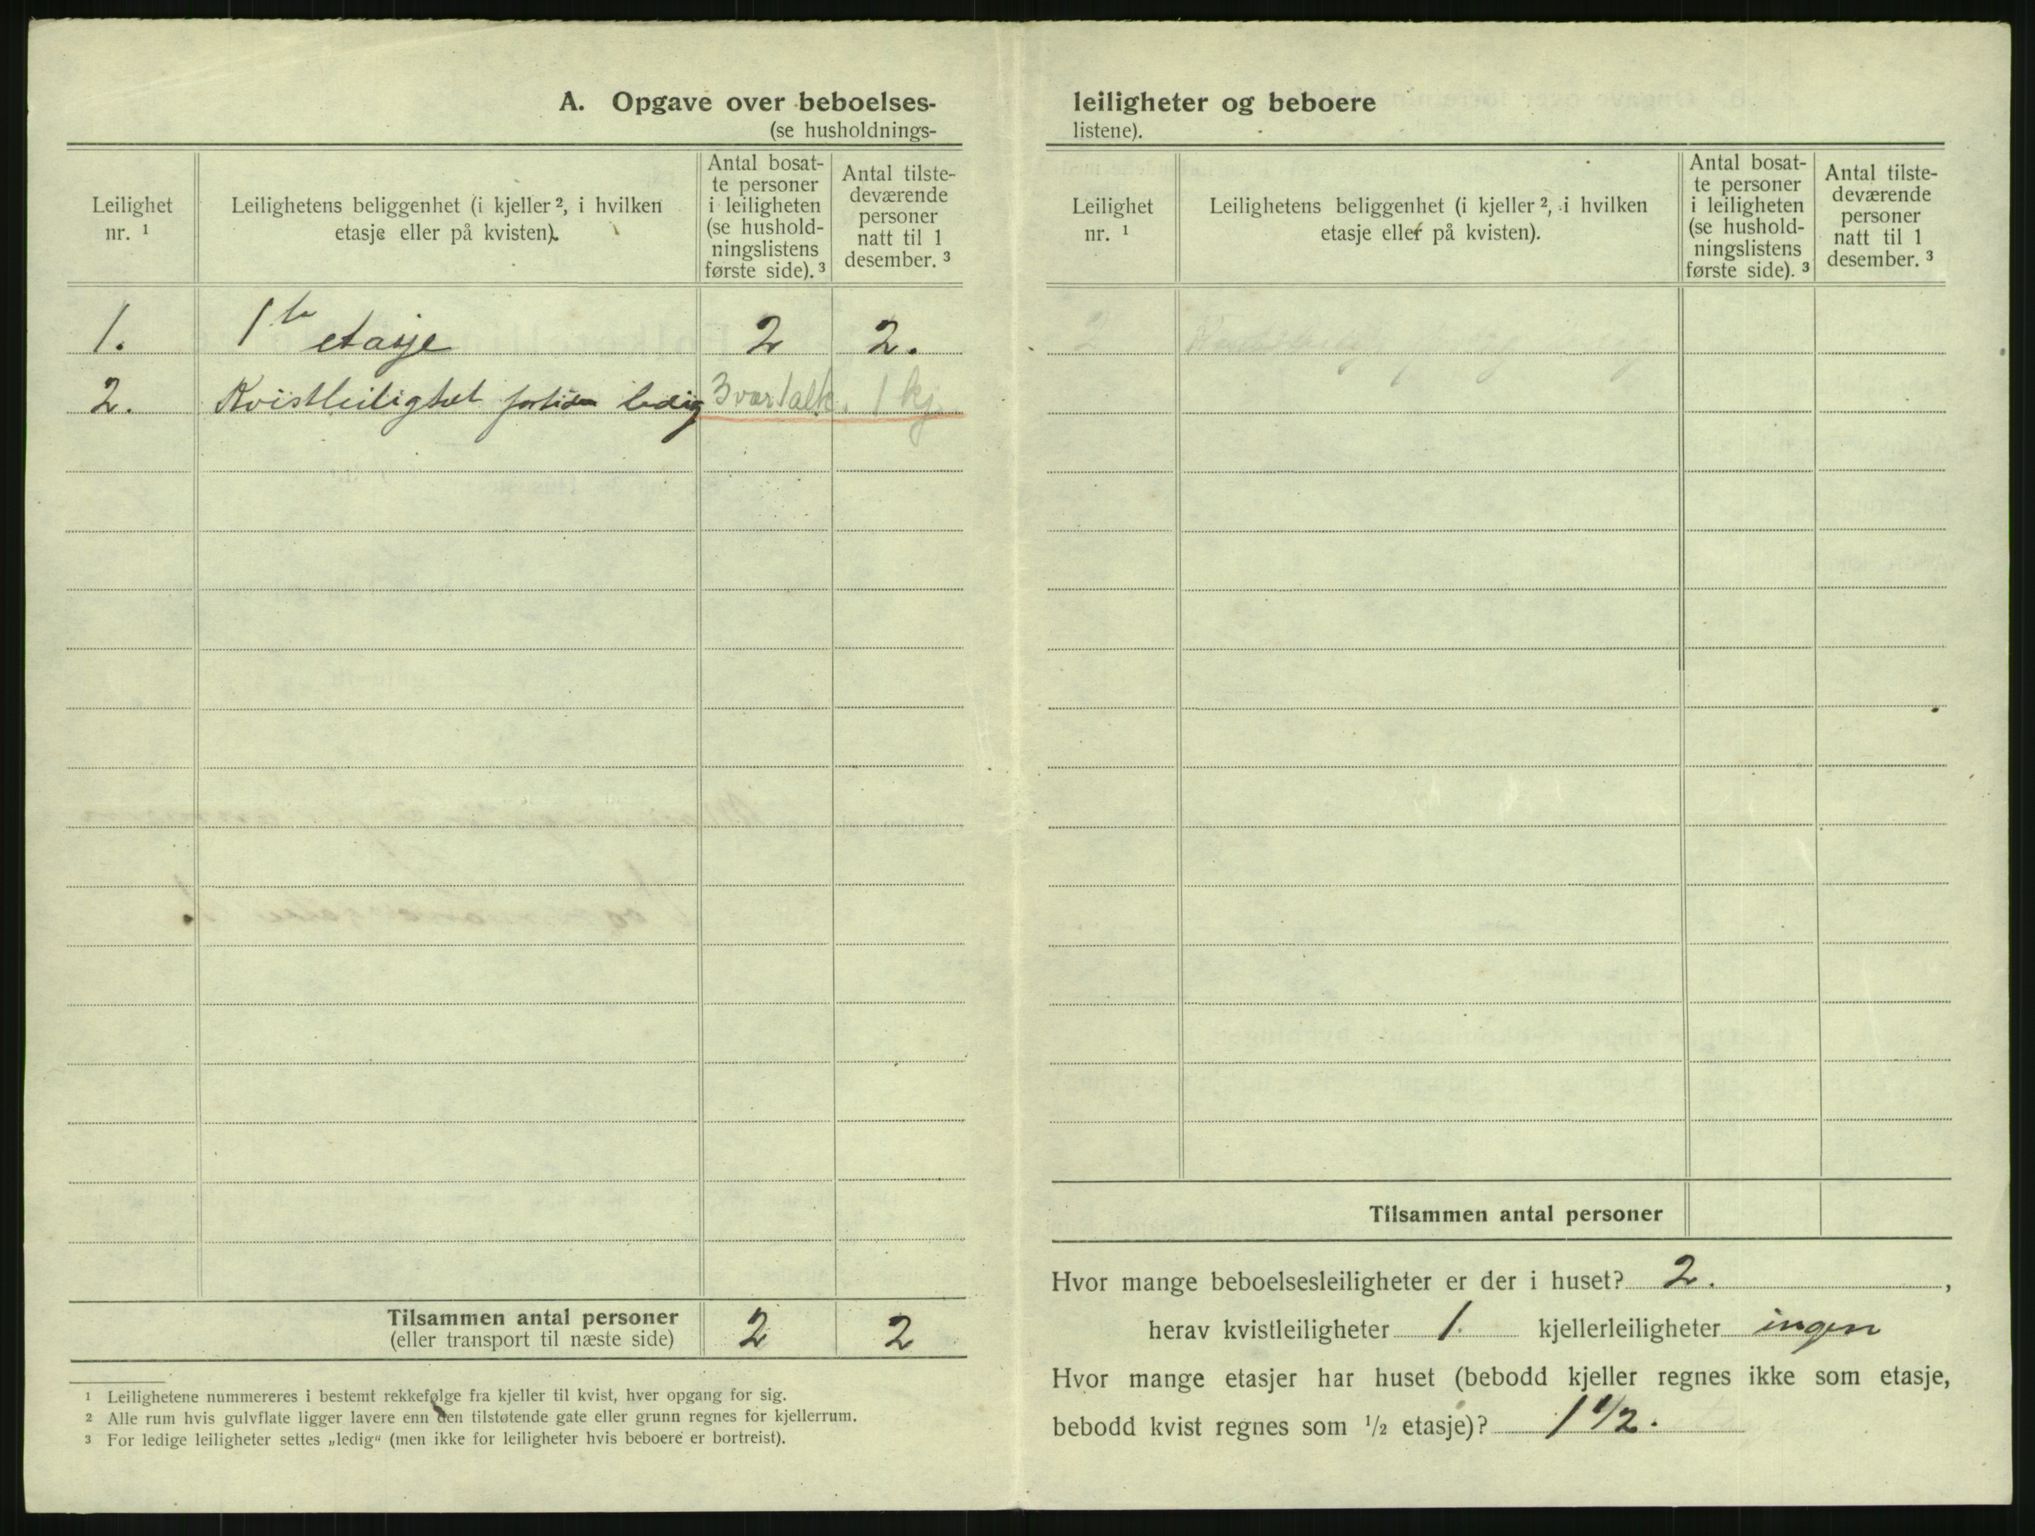 A. Opgave over beboelses-
(se husholdnings-
Leilighet
nr. 1
Leilighetens beliggenhet (i kjeller 2, i hvilken
etasje eller på kvisten).
Antal bosat-
te personer
i leiligheten
(se hushold-
ningslistens
første side). 3
Antal tilste-
deværende
personer
natt til 1
desember. 3
1. 1ste etasje 2 2.
2. Kvistleilighet fortiden ledig 3 vær 1 alk. 1 kj.
Tilsammen antal personer 2 2
(eller transport til næste side)
1 Leilighetene nummereres i bestemt rekkefølge fra kjeller til kvist, hver opgang for sig.
2 Alle rum hvis gulvflate ligger lavere enn den tilstøtende gate eller grunn regnes for kjellerrum.
3 For ledige leiligheter settes „ledig“ (men ikke for leiligheter hvis beboere er bortreist).
leiligheter og beboere
listene).
Leilighet
nr. 1
Leilighetens beliggenhet (i kjeller 2, i hvilken
etasje eller på kvisten).
Antal bosat-
te personer
i leiligheten
(se hushold-
ningslistens
første side). 3
Antal tilste-
deværende
personer
natt til 1
desember. 3
Tilsammen antal personer
Hvor mange beboelsesleiligheter er der i huset? 2. ,
herav kvistleiligheter 1. kjellerleiligheter ingen
Hvor mange etasjer har huset (bebodd kjeller regnes ikke som etasje,
bebodd kvist regnes som 1/2 etasje)? 1 1/2.